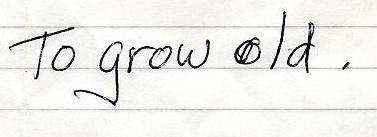 To grow old.